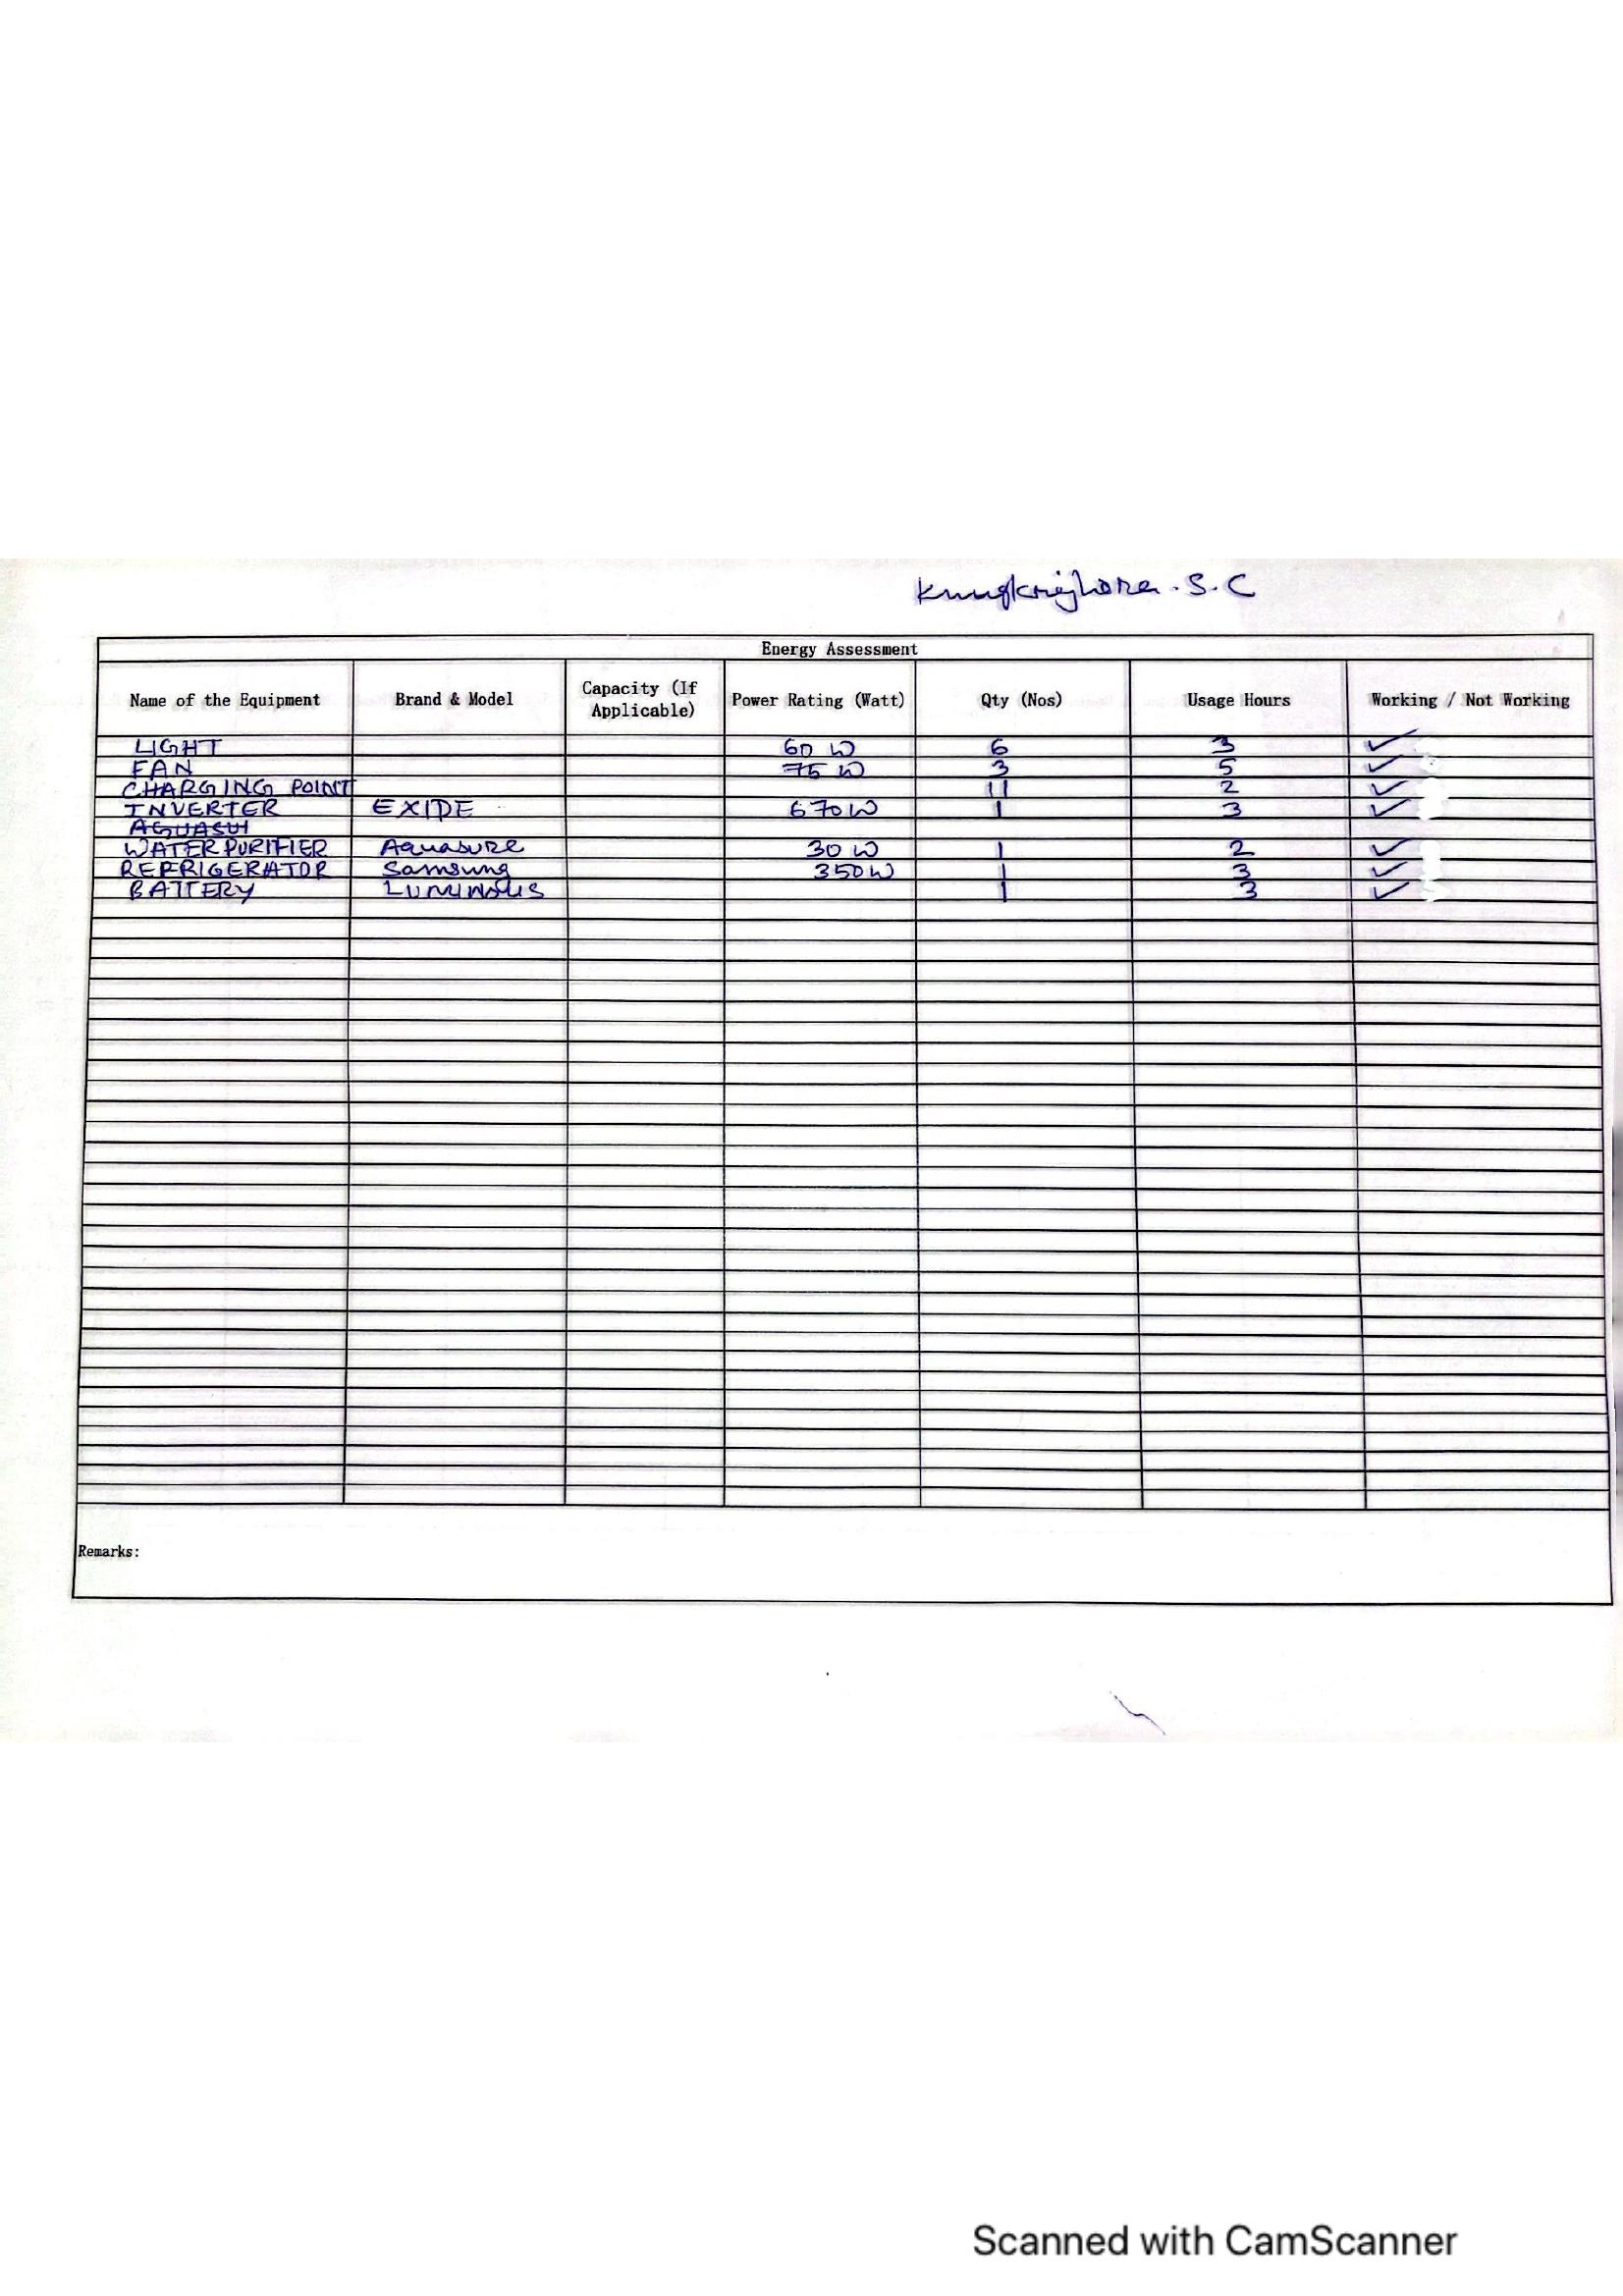 S.C
Energy Assessment
Name of the Equipment Brand & Model Capacity (If Applicable) Power Rating (Watt) Qty (Nos) Usage Hours Working / Not Working
LIGHT 60 W 6 3 ✓
FAN 75 W 3 5 ✓
CHARGING POINT 11 2 ✓
INVERTER EXIDE 670W 1 3 ✓
AGUASUI
WATER PURIFIER Aquasure 30 W 1 2 ✓
REFRIGERATOR Samsung 350W 1 3 ✓
BATTERY LUMINOUS 1 3 ✓
Remarks:
Scanned with CamScanner